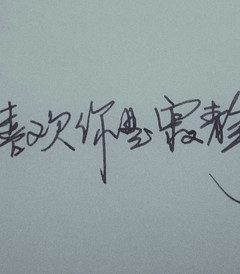 喜欢你是寂静